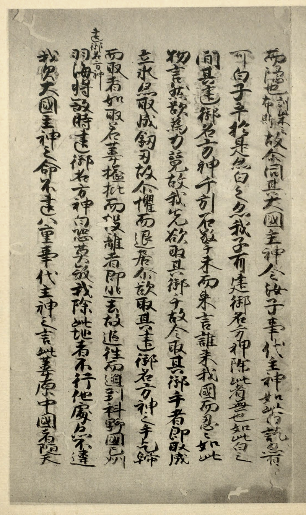 而隱也訓柴云布斯故尓問其大國主神今汝子事代主神如此白訖亦有
可白子乎於是亦白之亦我子有建御名方神除此者無也如此白之
間其建御名方神千引石擎手末而來言誰來我國而忍々如此
物言然欲為力競故我先欲取其御手故令取其御手者即取成
立氷亦取成劔刃故尓懼而退居尓欲取其建御名方神之手乞歸
而取者如取若葦搤批而投離者即逃去故追往而迫到科野國之州
建御名方神
羽海將殺時建御名方神白恐莫殺我除此地者不行他處亦不違
我父大國主神之命不違八重事代主神之言此葦原中國者隨天